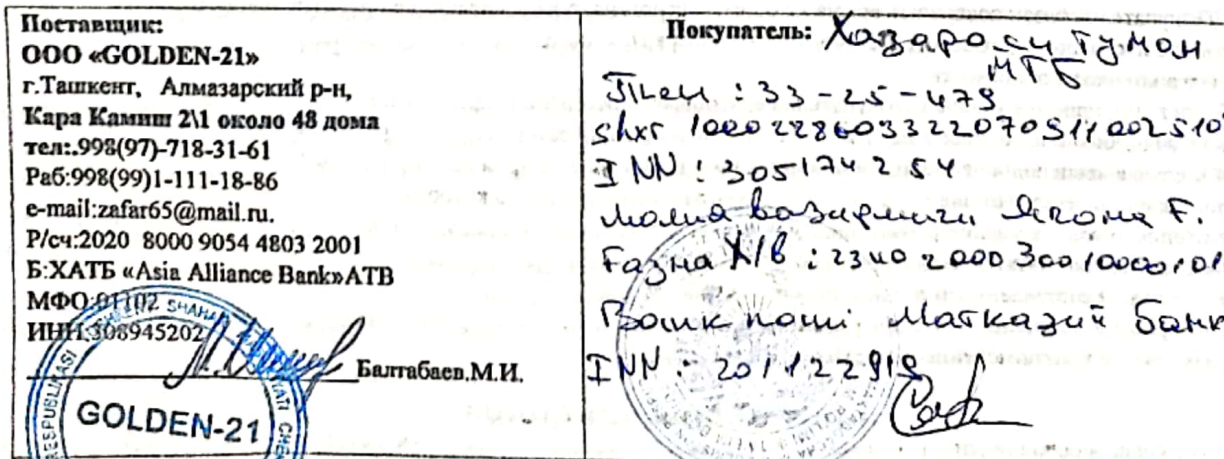 Поставщик:
ООО «GOLDEN-21»
г.Ташкент, Алмазарский р-н,
Кара Камиш 2\1 около 48 дома
тел:.998(97)-718-31-61
Раб:998(99)1-111-18-86
e-mail:zafar65@mail.ru.
Р/сч:2020 8000 9054 4803 2001
Б:ХАТБ «Asia Alliance Bank»АТВ
МФО:01102
ИНН:308945202
Балтабаев.М.И.
GOLDEN-21
Покупатель: Хазарасп Туман
МТБ
Тлен : 33-25-479
Shxr 100022860332207051100251
INN : 305174254
молия вазирлиги
Fазна Х/В : 23402000300100001010
Банк номи Марказий банк
INN : 201122919